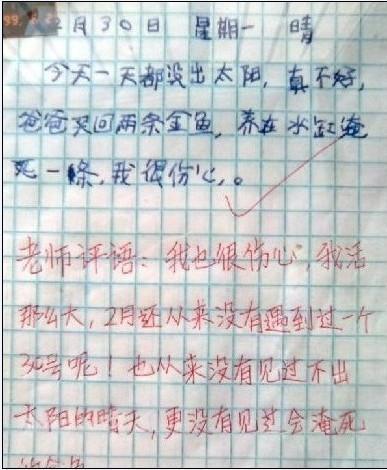 2月30日 星期一 晴
今天一天都没出太阳,真不好,
爸爸买回两条金鱼,养在水缸淹
死一條,我很伤心。
老师评语:我也很伤心,我活
那么大,2月还从来没有遇到过一个
30号呢!也从来没有见过不出
太阳的晴天,更没有见过会淹死